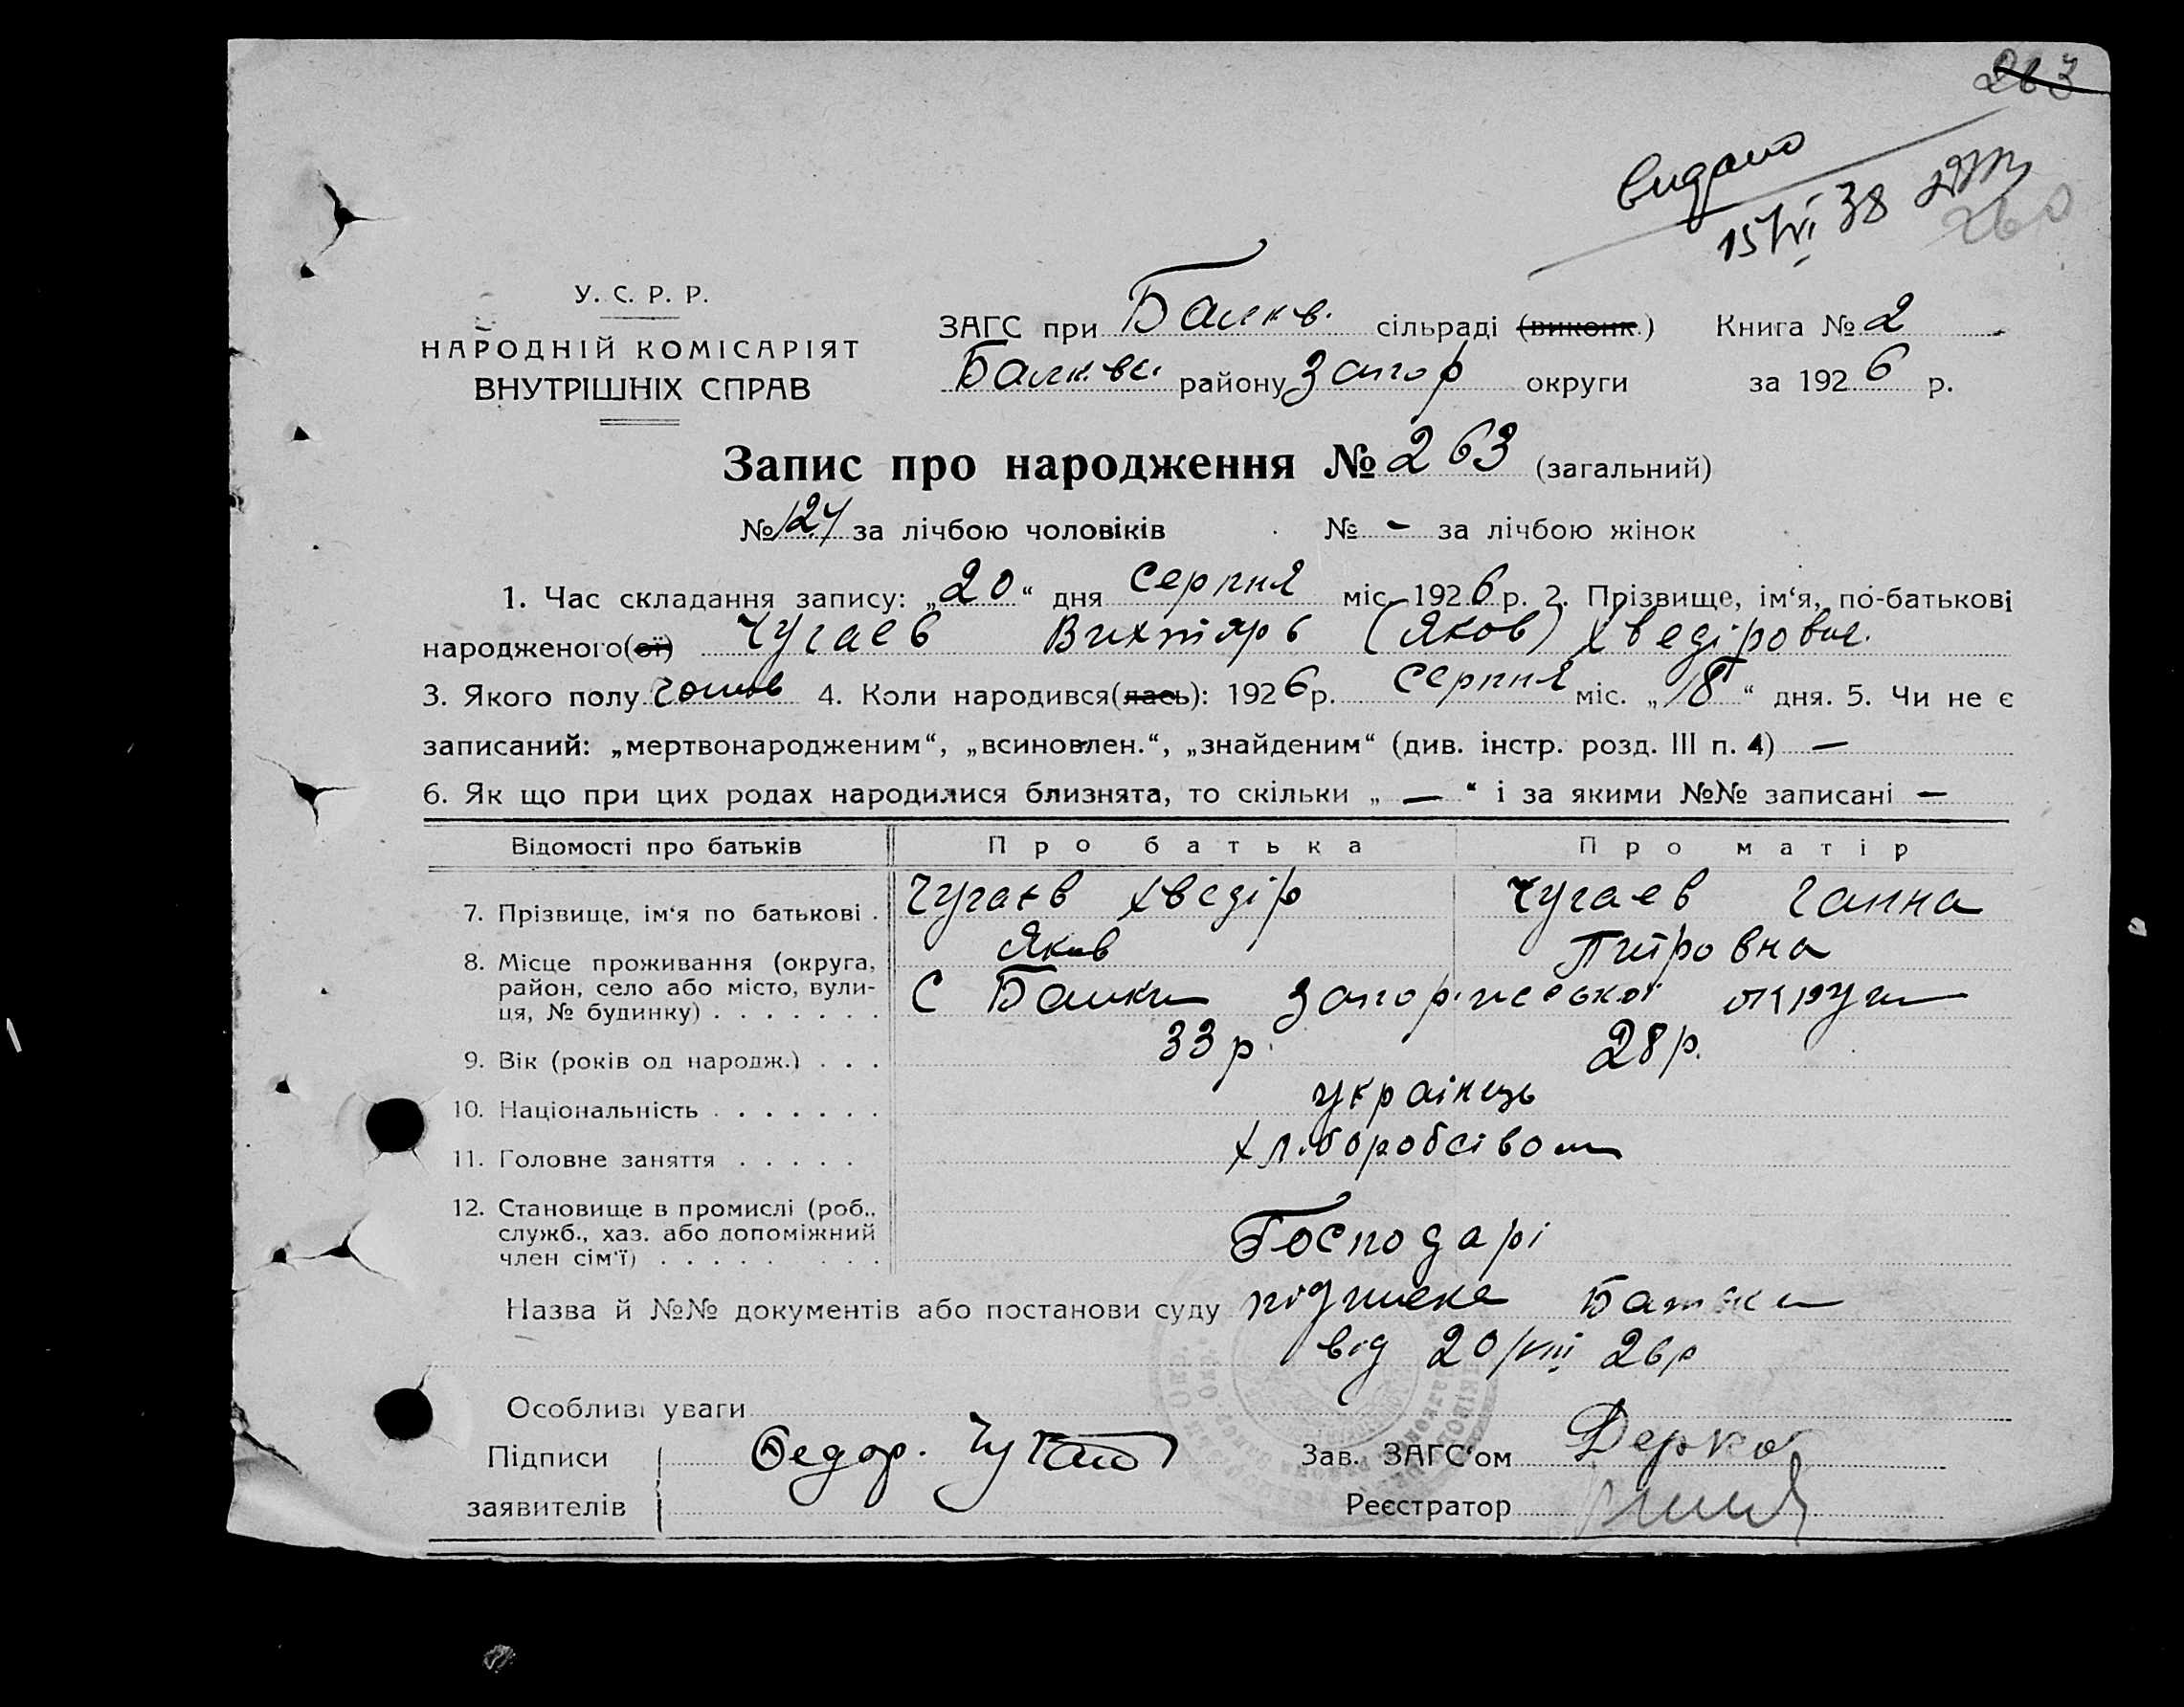 263
видано
15/VI 38
260
У. С. Р. Р.
НАРОДНІЙ КОМІСАРІЯТ
ВНУТРІШНІХ СПРАВ
ЗАГС при Балків. сільраді (виконк.) Книга № 2
Балків. району Запор округи за 1926 р.
Запис про народження № 263 (загальний)
№ 124 за лічбою чоловіків № - за лічбою жінок
1. Час складання запису: „20“ дня Серпня міс. 1926 р. 2. Прізвище, ім‘я, по-батькові
народженого(ої) Чугаев Вихтярь (Яков) Хведірович.
3. Якого полу чолов 4. Коли народився(лась): 1926 р. Серпня міс. „18“ дня. 5. Чи не є
записаний: „мертвонародженим“, „всиновлен.“, „знайденим“ (див. інстр. розд. III п. 4) —
6. Як що при цих родах народилися близнята, то скільки „ — “ і за якими №№ записані —
Відомості про батьків Про батька Про матір
7. Прізвище, ім‘я по батькові . Чугаєв Хведір Чугаев Ганна
Яков Питровна
8. Місце проживання (округа,
район, село або місто, вули-
ця, № будинку) . . . . . . . С Балки Запоріжської округи
9. Вік (років од народж.) . . . 33 р. 28 р.
10. Національність . . . . . . . українець
11. Головне заняття . . . . . хліборобсівом
12. Становище в промислі (роб.,
служб., хаз. або допоміжний
член сім‘ї) . . . . . . . . Господарі
Назва й №№ документів або постанови суду підписка Батька
від 20/VIII 26 р
Особливі уваги
Підписи Федор. Чугаев Зав. ЗАГС‘ом Дерко
заявителів Реєстратор